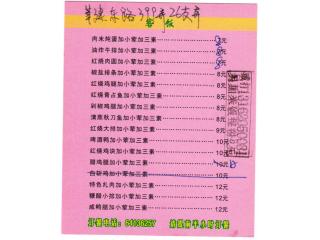 客饭
肉末炖蛋加小荤加三素 8元
油炸牛排加小荤加三素 8元
红烧肉圆加小荤加三素 8元
椒盐排条加小荤加三素 8元
红烧鸡腿加小荤加三素 8元
红烧青占鱼加小荤加三素 8元
剁椒鸡腿加小荤加三素 8元
清蒸秋刀鱼加小荤加三素 8元
红烧大排加小荤加三素 9元
啤酒鸭加小荤加三素 10元
红烧鸡块加小荤加三素 10元
腊鸡腿加小荤加三素 10元
白斩鸡加小荤加三素 10元
特色扎肉加小荤加三素 12元
糖醋小排加小荤加三素 12元
咸鸭腿加小荤加三素 12元
订餐电话：54136257 请提前半小时订餐